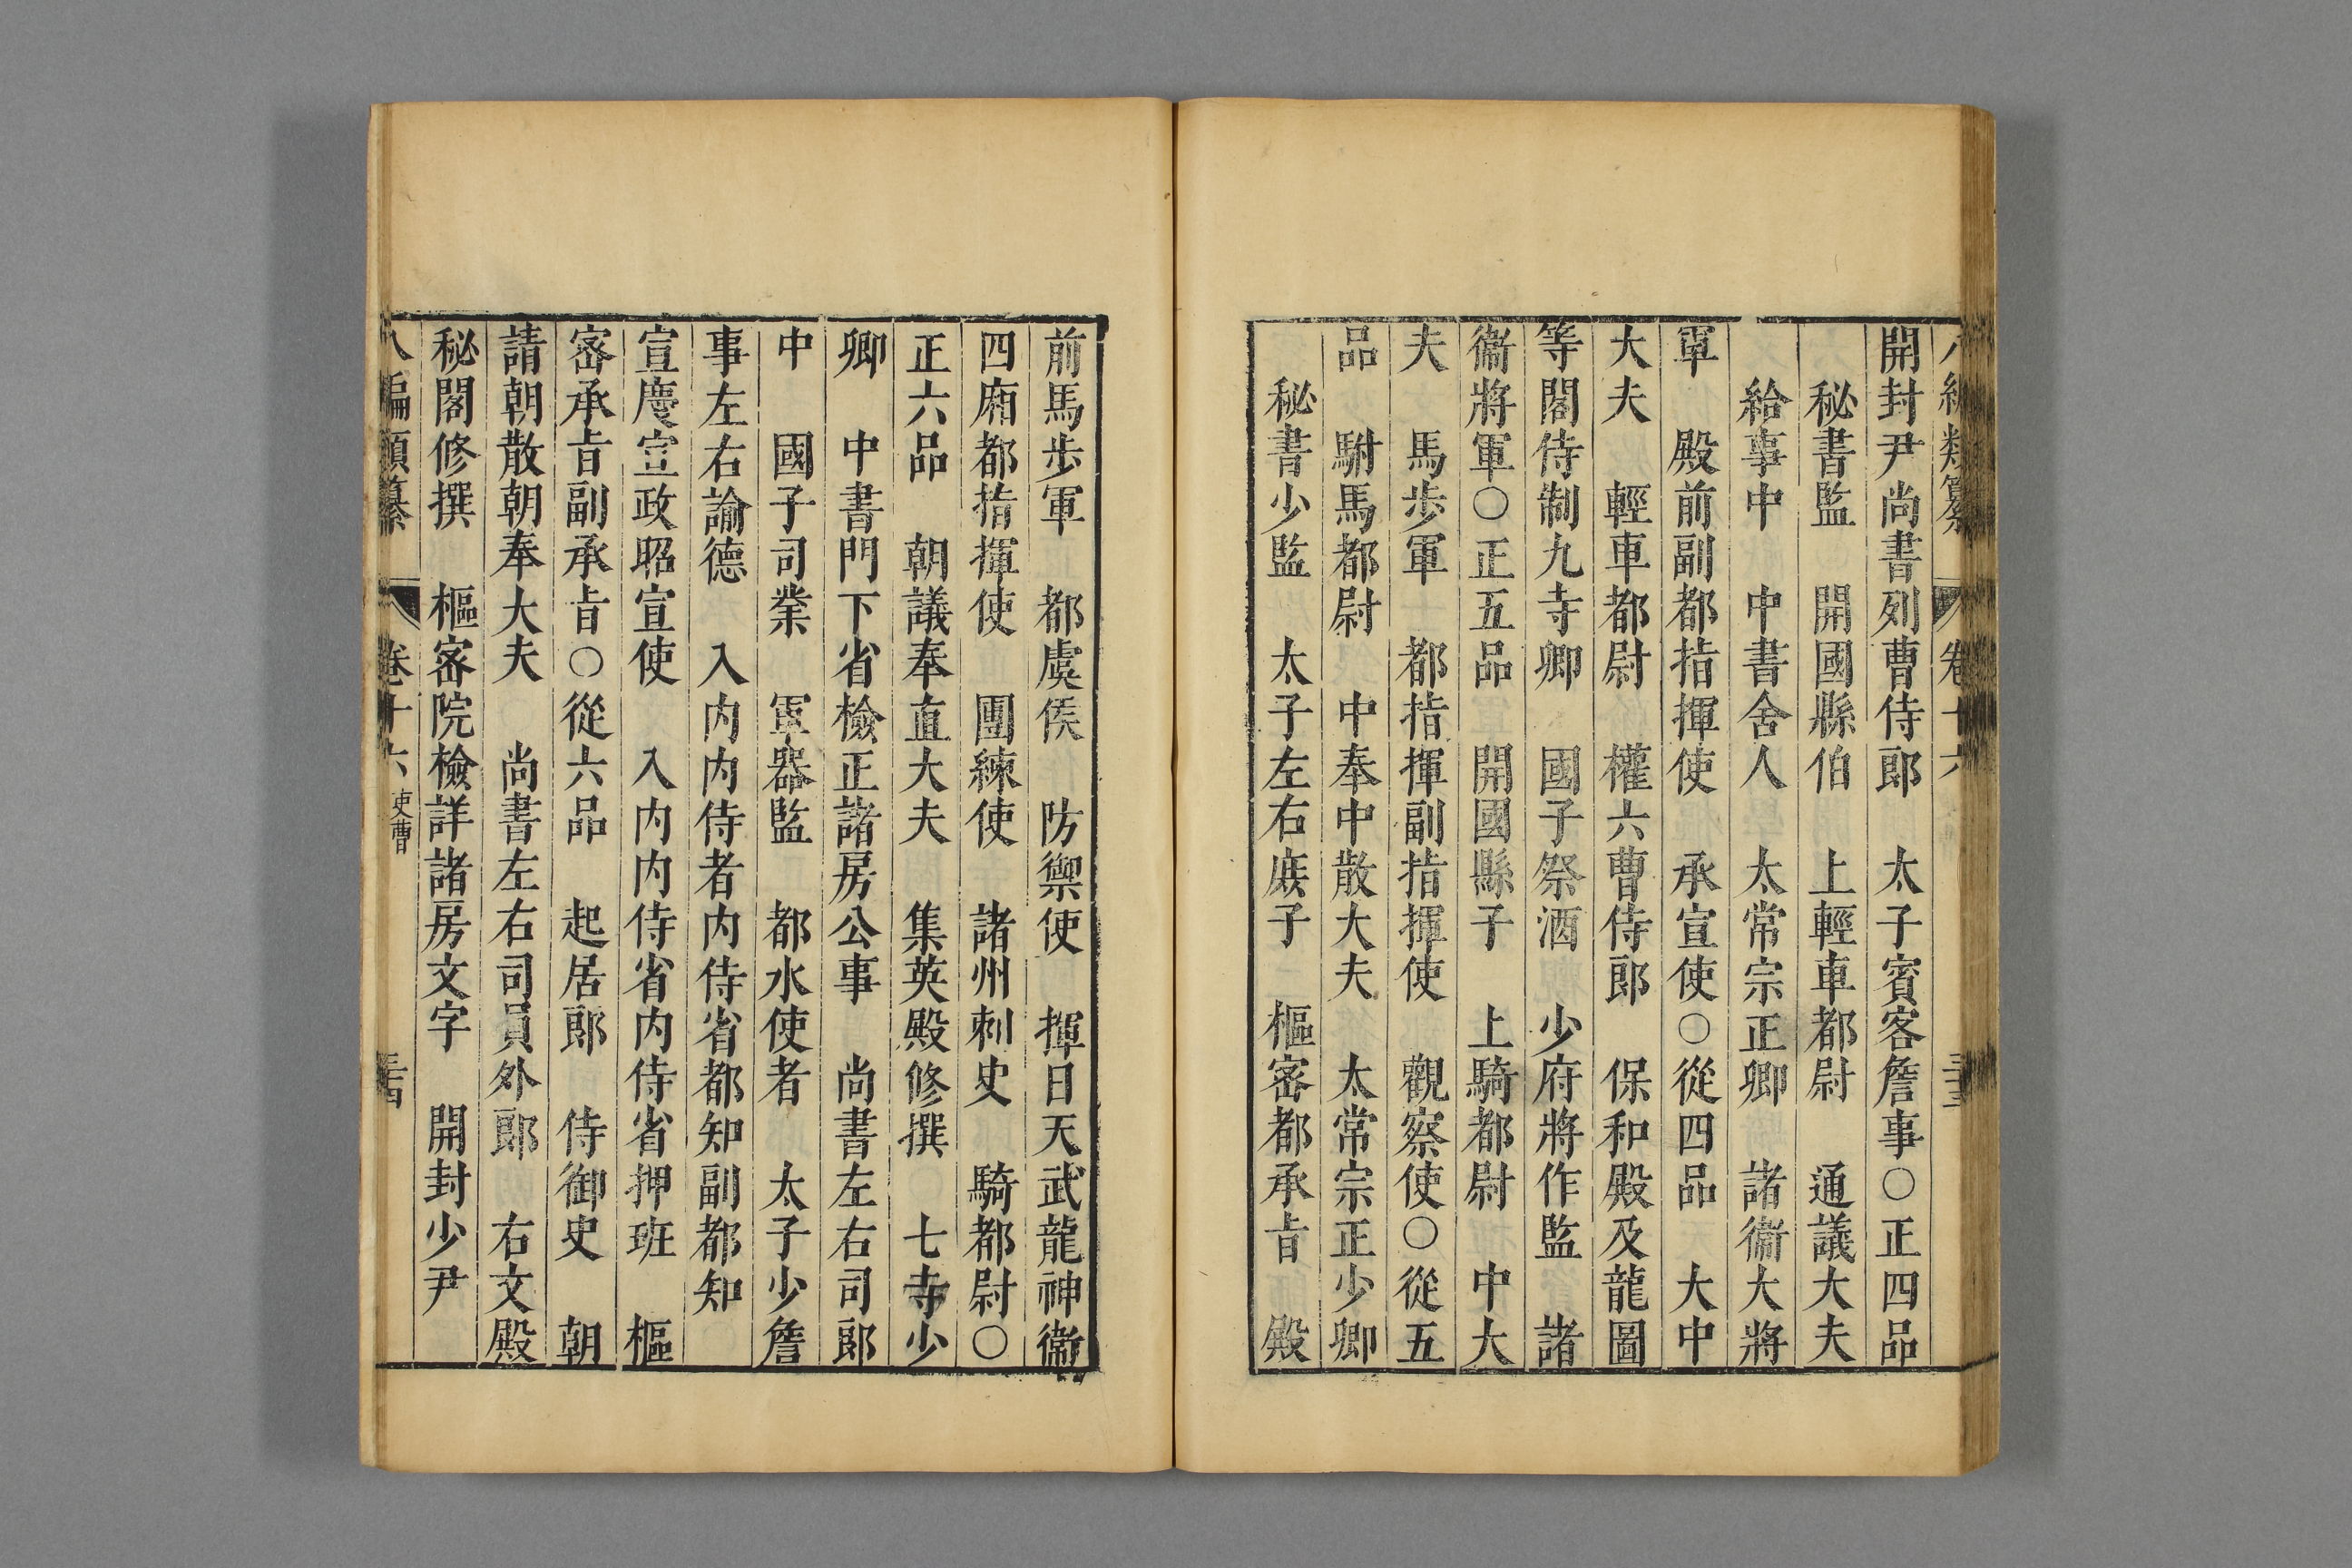 開封尹尚書列曹侍郎　太子賓客詹事〇正四品
秘書監　開國縣伯　上輕車都尉　通議大夫
給事中　中書舍人　太常宗正卿　諸衞大將
軍　殿前副都指揮使　承宣使〇從四品　大中
大夫　輕車都尉　權六曹侍郎　保和殿及龍圖
等閣侍制九寺卿　國子祭酒　少府將作監　諸
衞將軍〇正五品　開國縣子　上騎都尉　中大
夫　馬步軍　都指揮副指揮使　觀察使〇從五
品　駙馬都尉　中奉中散大夫　太常宗正少卿
秘書少監　太子左右庶子　樞密都承旨　殿
前馬步軍　都虞侯　防禦使　揮日天武龍神衞
四廂都指揮使　團練使　諸州刺史　騎都尉〇
正六品　朝議奉直大夫　集英殿修撰　七寺少
卿　中書門下省檢正諸房公事　尚書左右司郎
中　國子司業　軍器監　都水使者　太子少詹
事左右諭德　入内内侍者内侍省都知副都知
宣慶宣政昭宣使　入内内侍省内侍省押班　樞
密承旨副承旨〇從六品　起居郎　侍御史　朝
請朝散朝奉大夫　尚書左右司員外郎　右文殿
秘閣修撰　樞密院檢詳諸房文字　開封少尹
八編類纂　卷十六　吏曹　三十四